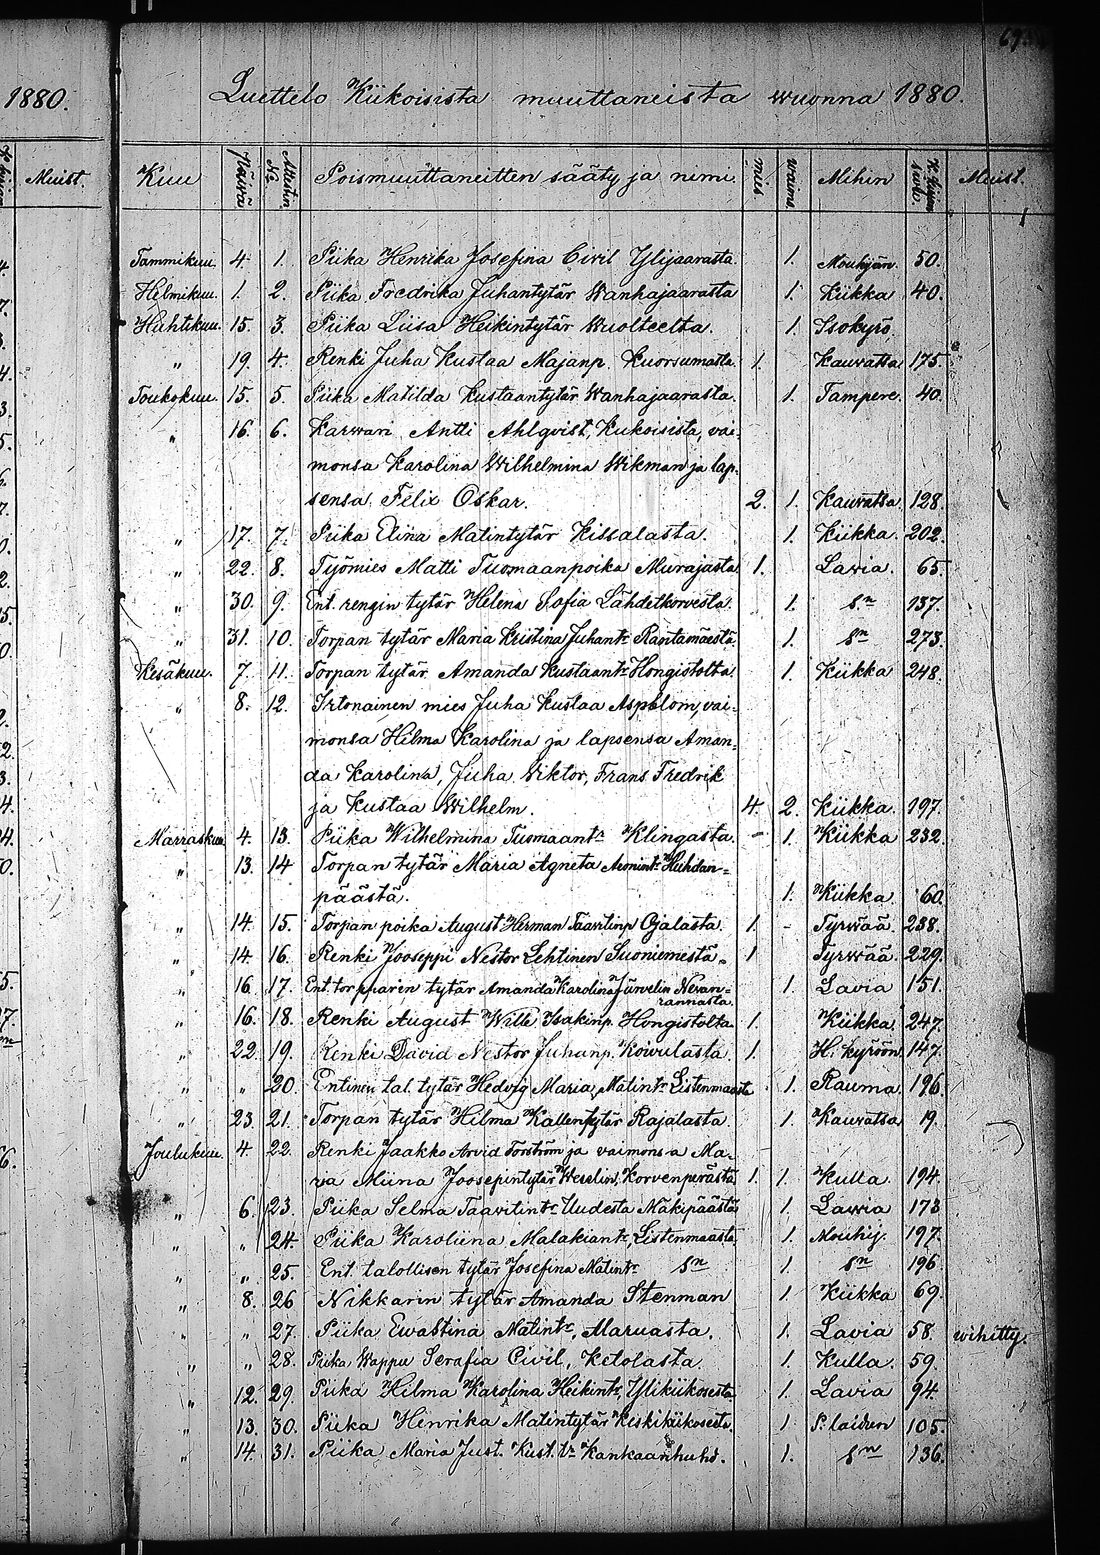 1880.
Luettelo Kiikoisista muuttaneista wuonna 1880.
Muist.
Kuu Päiwä Attestin No Poismuuttaneitten sääty ja nimi. mies. waimo. Mihin Muist.
Tammikuu. 4. 1. Piika Henrika Josefina Civil Ylijaarasta 1. Mouhijärv. 50.
Helmikuu. 1. 2. Piika Fredrika Juhantytär Wanhajaarasta 1. Kiikka 40.
Huhtikuu. 15. 3. Piika Liisa Heikintytär Wuolteelta. 1. Isokyrö
„ 19. 4. Renki Juha Kustaa Majanp. Kuorsumasta 1. Kauvatsa 175.
Toukokuu. 15. 5. Piika Matilda Kustaantytär Wanhajaarasta. 1. Tampere. 40.
„ 16. 6. Karwari Antti Ahlqvist, Kiikoisista, vai-
monsa Karolina Wilhelmina Wikman ja lap-
sensa Felix Oskar. 2. 1. Kauvatsa. 128.
„ 17. 7. Piika Elina Matintytär Kissalasta. 1. Kiikka. 202.
„ 22. 8. Työmies Matti Tuomaanpoika Murajasta 1. Lawia. 65.
„ 30. 9. Ent. rengin tytär Helena Sofia Lähdetkorvesta. 1. sn 137.
„ 31. 10. Torpan tytär Maria Kristina Juhantr Rantamäestä 1. sn 273.
Kesäkuu. 7. 11. Torpan tytär Amanda Kustaantr Hongistolta 1. Kiikka 248.
„ 8. 12. Irtonainen mies Juha Kustaa Aspblom, vai-
monsa Hilma Karolina ja lapsensa Aman-
da Karolina, Juha Viktor, Frans Fredrik
ja Kustaa Wilhelm. 4. 2. Kiikka. 197.
Marraskuu. 4. 13. Piika Wilhelmina Tuomaantr Klingasta. - 1. Kiikka 232.
„ 13. 14 Torpan tytär Maria Agneta Aronintr Huhdan-
päästä. 1. Kiikka 60.
„ 14. 15. Torpan poika August Herman Taavitinp Ojalasta. 1. - Tyrwää. 238.
„ 14 16. Renki Jooseppi Nestor Lehtinen Suoniemestä. 1 Tyrwää. 229.
„ 16. 17. Ent. torpparin tytär Amanda Karolina Järvelin Nevan-
rannasta. 1. Lavia 151.
„ 16. 18. Renki August Wille Isakinp. Hongistolta 1. Kiikka 247.
„ 22. 19. Renki David Nestor Juhanp. Koiwulasta. 1. H: kyröön. 147.
„ „ 20. Entinen tal. tytär Hedvig Maria Matintr Leistenmaasta 1. Rauma. 196.
„ 23. 21. Torpan tytär Hilma Kallentytär Rajalasta. 1. Kauvatsa 19.
Joulukuu. 4 22. Renki Jaakko Arvid Torström ja vaimonsa Ma-
ria Miina Joosepintytär Weselin, Korvenperästä 1. 1. Kulla. 194.
„ 6. 23. Piika Selma Taavitintr Uudesta Mäkipäästä 1. Lawia 173
„ „ 24. Piika Karoliina Malakiantr, Leistenmaasta. 1. Mouhij. 197.
„ „ 25. Ent. talollisen tytär Josefina Matintr sn 1. sn 196
„ 8. 26 Nikkarin tytär Amanda Stenman 1. Kiikka 69.
„ „ 27. Piika Ewastina Matintr, Maruasta. 1. Lavia 58. wihitty.
„ „ 28. Piika Wappu Serafia Civil, Ketolasta 1. Kulla. 59.
„ 12. 29. Piika Hilma Karolina Heikintr, Ylikiikoisesta 1. Lavia 94.
„ 13. 30. Piika Hinrika Matintytär Keskikiikoisesta. 1 105.
„ 14. 31. Piika Maria Just. Kust. tr Kankaanhuhd. 1. sn 136.